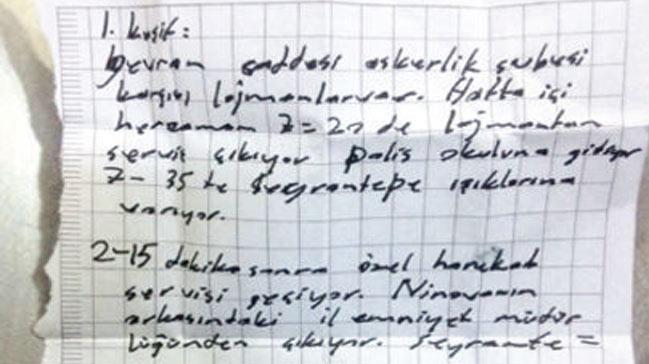 1. keşif:
Gevran caddesi askerlik şubesi
karşısı lojmanlar var. Hafta içi
herzaman 7=20 de lojmantan
servis çıkıyor polis okuluna gidiyor
7-35 te Seyrantepe ışıklarına
varıyor.
2-15 dakika sonra özel harekat
servisi geçiyor. Ninovanın
arkasındaki il emniyet müdür
lüğünden çıkıyor. Seyrante=